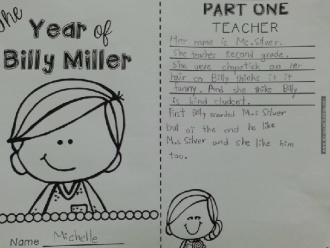 The
Year of
Billy Miller
Name: Michelle
PART ONE
TEACHER
Her name is Ms. Silver.
She teaches second grade.
She wears chopstick on her
hair on Billy thinks it it
funny. And she thinks Billy
is kind student.
First Billy scarded Mas Silver
but at the end he like
Mas Silver and she like him
too.